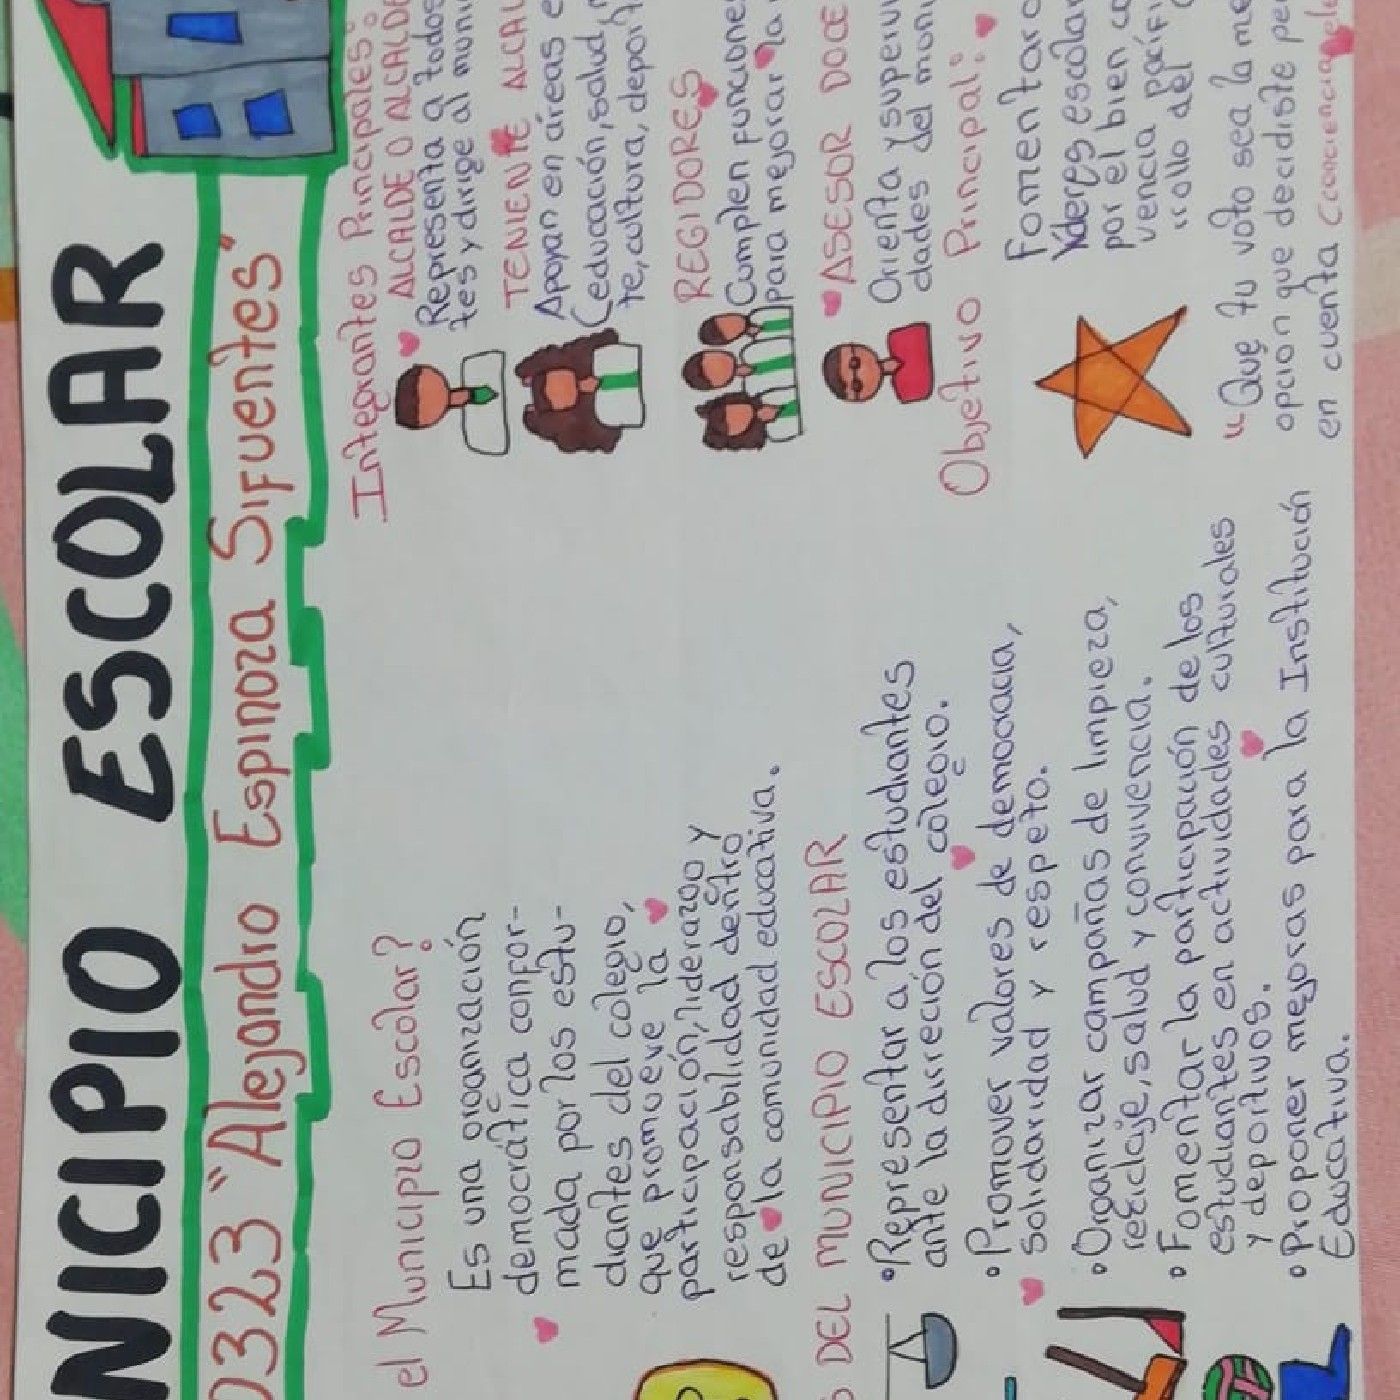 NICIPIO ESCOLAR
0323 "Alejandro Espinoza Sifuentes"
el Municipio Escolar?
Es una organización
democrática confor-
mada por los estu-
diantes del colegio,
que promueve la
participación, liderazgo y
responsabilidad dentro
de la comunidad educativa.
S DEL MUNICIPIO ESCOLAR
• Representar a los estudiantes
ante la dirreción del colegio.
• Promover valores de democracia,
solidaridad y respeto.
• Organizar campañas de limpieza,
reciclaje, salud y convivencia.
• Fomentar la participación de los
estudiantes en actividades culturales
y deportivos.
• Proponer mejoras para la Institución
Educativa.
Integrantes Principales:
ALCALDE O ALCALDE
Representa a todos
tes y dirige al muni
TENIENTE ALCAL
Apoyan en áreas e
(educación, salud,
te, cultura, depor
REGIDORES
Cumplen funcione
para mejorar la
ASESOR DOCE
Orienta y supervi
dades del muni
Objetivo Principal:
Fomentar
líderes escolar
por el bien co
vencia pacífi
rrollo del
"Que tu voto sea la me
opcion que decidiste pe
en cuenta (conciencia, ele